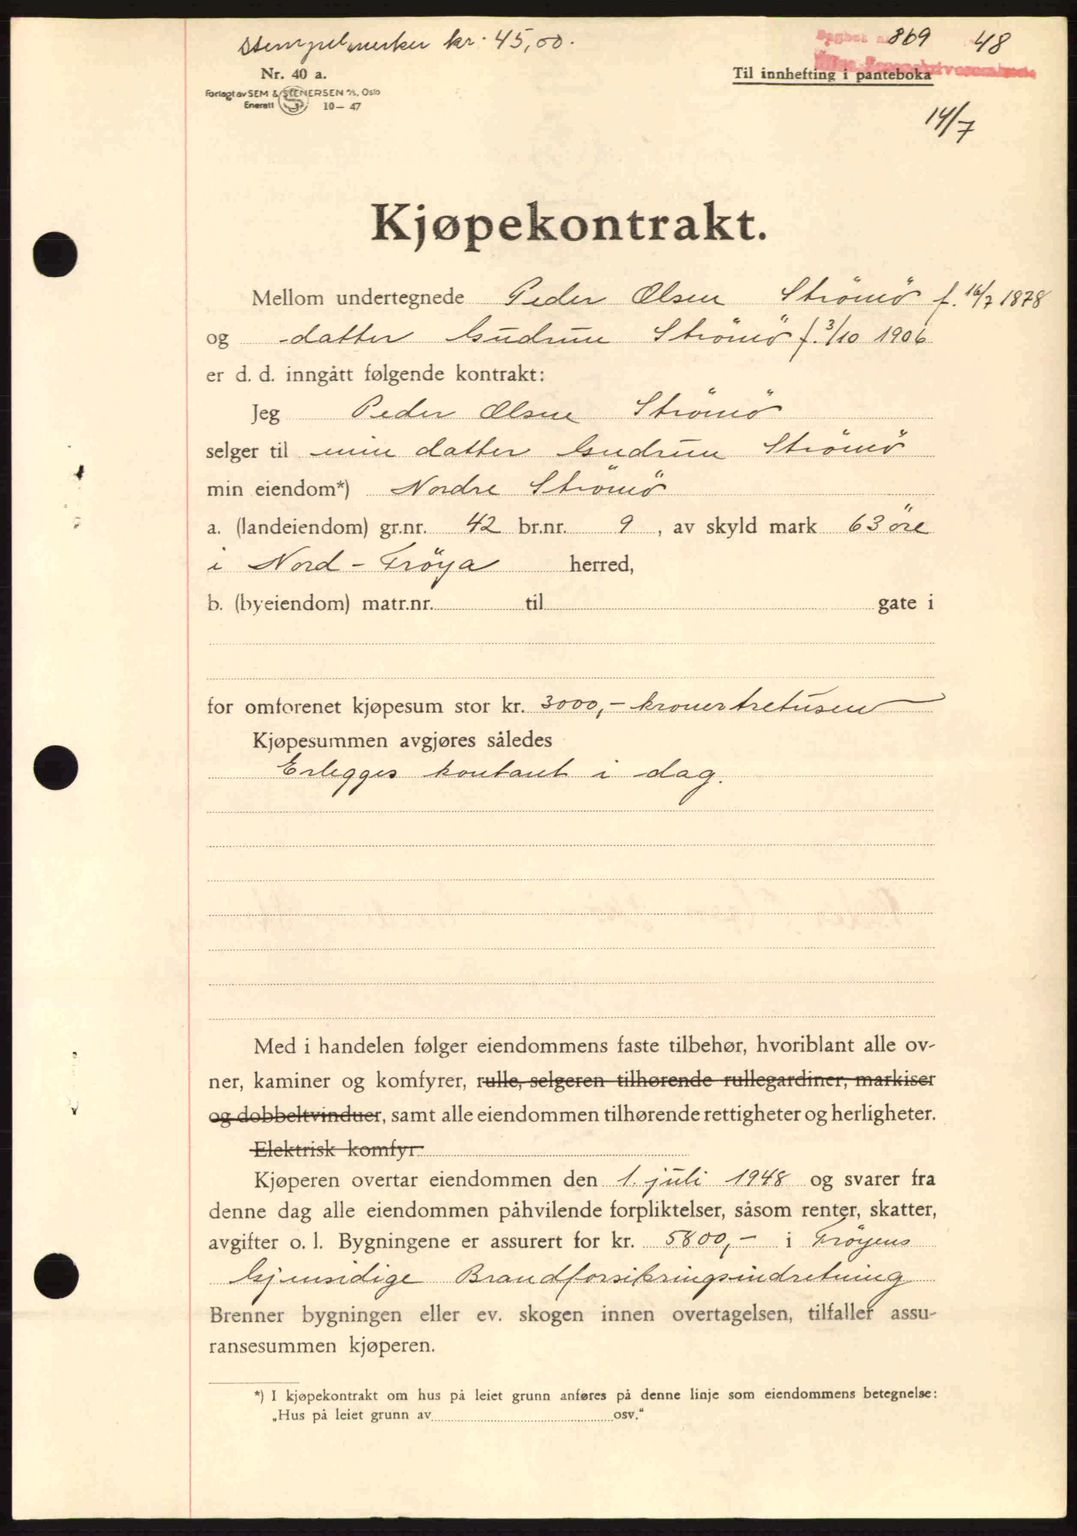 Stempelmerker kr. 45,00.
Dagbok nr. 869 48
Nr. 40 a.
Til innhefting i panteboka
Forlagt av SEM & STENERSEN A/S, Oslo
Enerett 10-47
14/7
Kjøpekontrakt.
Mellom undertegnede Peder Olsen Strömö f. 16/7 1878
og datter Gudrun Strömö f. 3/10 1906
er d. d. inngått følgende kontrakt:
Jeg Peder Olsen Strömö
selger til min datter Gudrun Strömö
min eiendom*) Nordre Strömö
a. (landeiendom) gr.nr. 42 br.nr. 9, av skyld mark 63 öre
i Nord-Fröya herred,
b. (byeiendom) matr.nr. til gate i
for omforenet kjøpesum stor kr. 3000,- kronertretusen
Kjøpesummen avgjøres således
Erlegges kontant i dag.
Med i handelen følger eiendommens faste tilbehør, hvoriblant alle ov-
ner, kaminer og komfyrer, rulle, selgeren tilhørende rullegardiner, markiser
og dobbeltvinduer, samt alle eiendommen tilhørende rettigheter og herligheter.
Elektrisk komfyr.
Kjøperen overtar eiendommen den 1. juli 1948 og svarer fra
denne dag alle eiendommen påhvilende forpliktelser, såsom renter, skatter,
avgifter o. l. Bygningene er assurert for kr. 5800,- i Fröyens
Gjensidige Brandforsikringsindretning
Brenner bygningen eller ev. skogen innen overtagelsen, tilfaller assu-
ransesummen kjøperen.
*) I kjøpekontrakt om hus på leiet grunn anføres på denne linje som eiendommens betegnelse:
„Hus på leiet grunn av osv.“